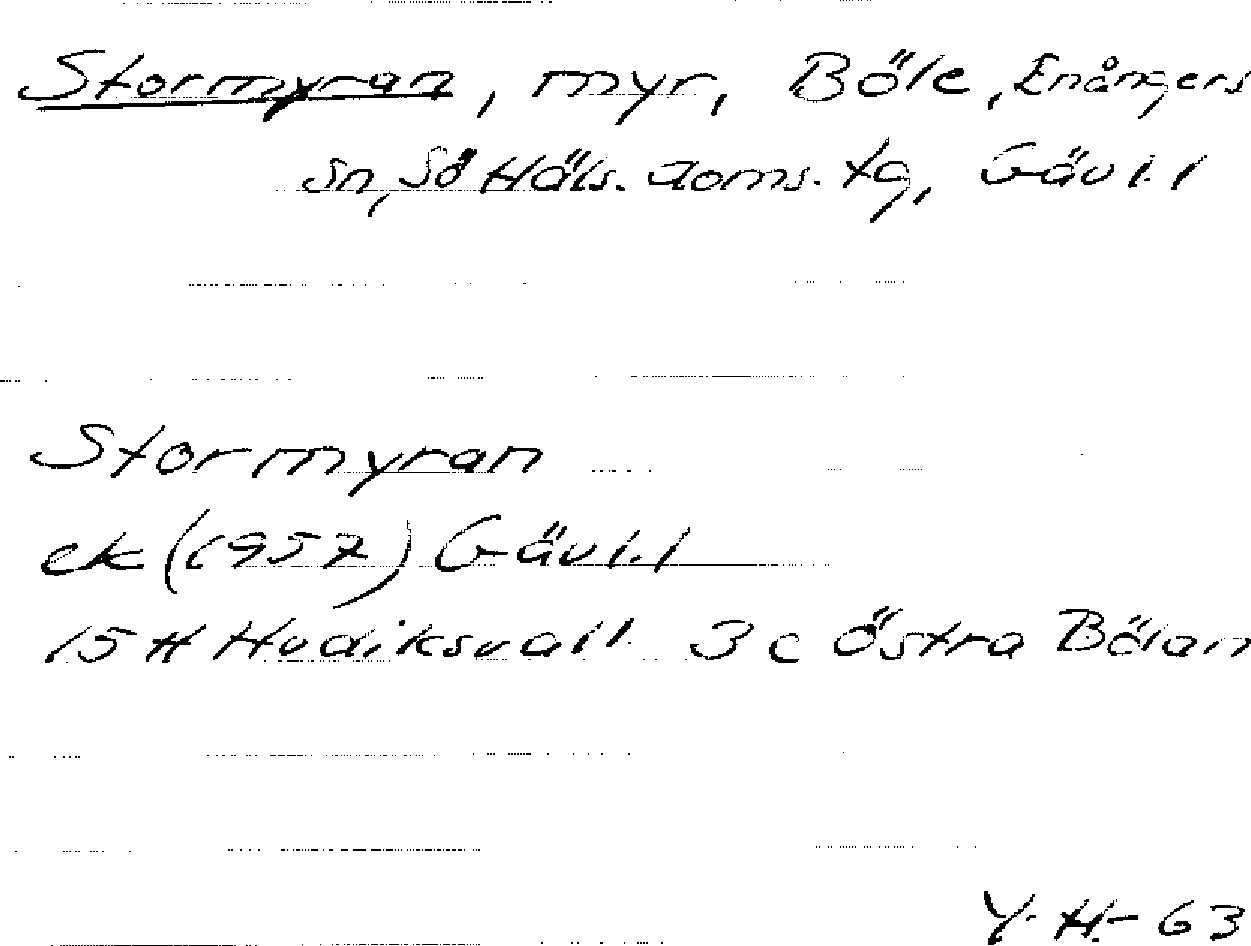 Stormyran, myr, Böle, Enångers
sn, Sö Häls. doms. tg, Gävl. l
Stormyran
ek (1957) Gävl. l
15 H Hudiksvall 3 c Östra Bölan
Y. H-63